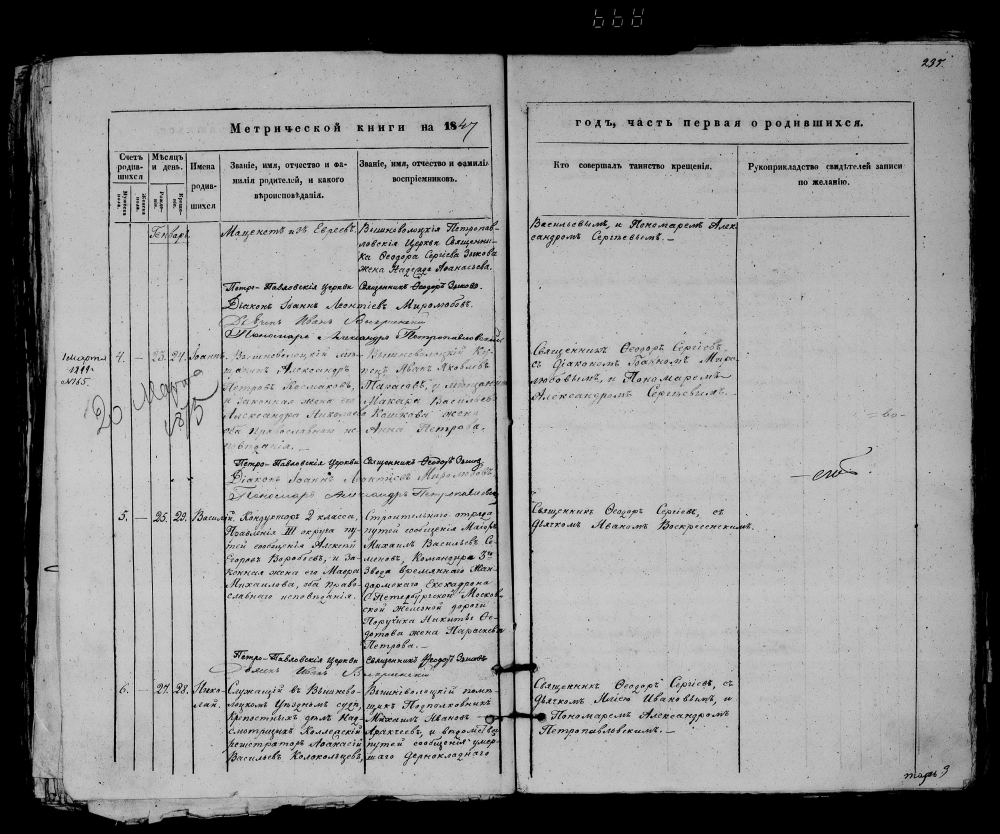 237.
Метрической книги на 1847
годъ, часть первая о родившихся.
Счетъ родив-шихся
Мѣсяцъ и день.
Имена родив-шихся
Званіе, имя, отчество и фа-
милія родителей, и какого
вѣроисповѣданія.
Званіе, имя, отчество и фамилія
воспріемниковъ.
Кто совершалъ таинство крещенія.
Рукоприкладство свидѣтелей записи
по желанію.
Генварь
изъ Евреевъ.
Вышневолоцкія Петропав-
ловскія Церкви Священни-
ка Ѳеодора Сергіева Зыкова
жена Надежда Аѳанасьева.
Васильевымъ, и Пономаремъ Алек-
сандромъ Сергѣевымъ.
Петро-Павловскія Церкви Священникъ Ѳеодоръ Зыковъ.
Діаконъ Іоаннъ Леонтіевъ Миролюбовъ.
Пономарь Александръ Петропавловскій
4. — 23. 24. Іоаннъ.
Вышневолоцкій мѣ-
щанинъ Александръ
Петровъ
и законная жена его
Александра Николаева
оба православнаго ис-
повѣданія.
Вышневолоцкій Ку-
пецъ Иванъ Яковлевъ
Тарасовъ, и мѣщанина
Макара Васильева
Кошкова жена
Анна Петрова.
Священникъ Ѳеодоръ Сергіевъ,
съ Діакономъ Іоанномъ Миро-
любовымъ, и Пономаремъ
Александромъ Сергѣевымъ.
20 Марта
1875
Петро-Павловскія Церкви Священникъ Ѳеодоръ Зыковъ
Діаконъ Іоаннъ Леонтіевъ Миролюбовъ
Пономарь Александръ Петропавловскій
5. — 25. 29. Василій.
Кондукторъ 2 класса,
Правленія III округа пу-
тей сообщенія Алексѣй
Егоровъ Воробьевъ, и за-
конная жена его Мавра
Михайлова, оба право-
славнаго исповѣданія.
Строительнаго отряда
путей сообщенія Маіоръ
Михаилъ Васильевъ Се-
меновъ, Командира 3го
Взвода временнаго Жан-
дармскаго Ескадрона
С.Петербургской Москов-
ской железной дороги
Поручика Никиты Ѳе-
дотова жена Параскева
Петрова.
Священникъ Ѳеодоръ Сергіевъ, съ
Дьячкомъ Иваномъ Воскресенскимъ.
Петро-Павловскія Церкви Священникъ Ѳеодоръ Зыковъ
6. — 27. 28. Нико-
лай.
Служащій въ Вышнево-
лоцкомъ Уѣздномъ судѣ,
Крепостныхъ дѣлъ Над-
смотрщикъ Коллежскій
регистраторъ Аѳанасій
Васильевъ Колокольцевъ,
Вышневолоцкій помѣ-
щикъ Подполковникъ
Михаилъ Ивановъ
Аракчеевъ, и ведомства
путей сообщенія умер-
шаго
Священникъ Ѳеодоръ Сергіевъ, съ
Дьячкомъ Ивановымъ, и
Пономаремъ Александромъ
Петропавловскимъ.